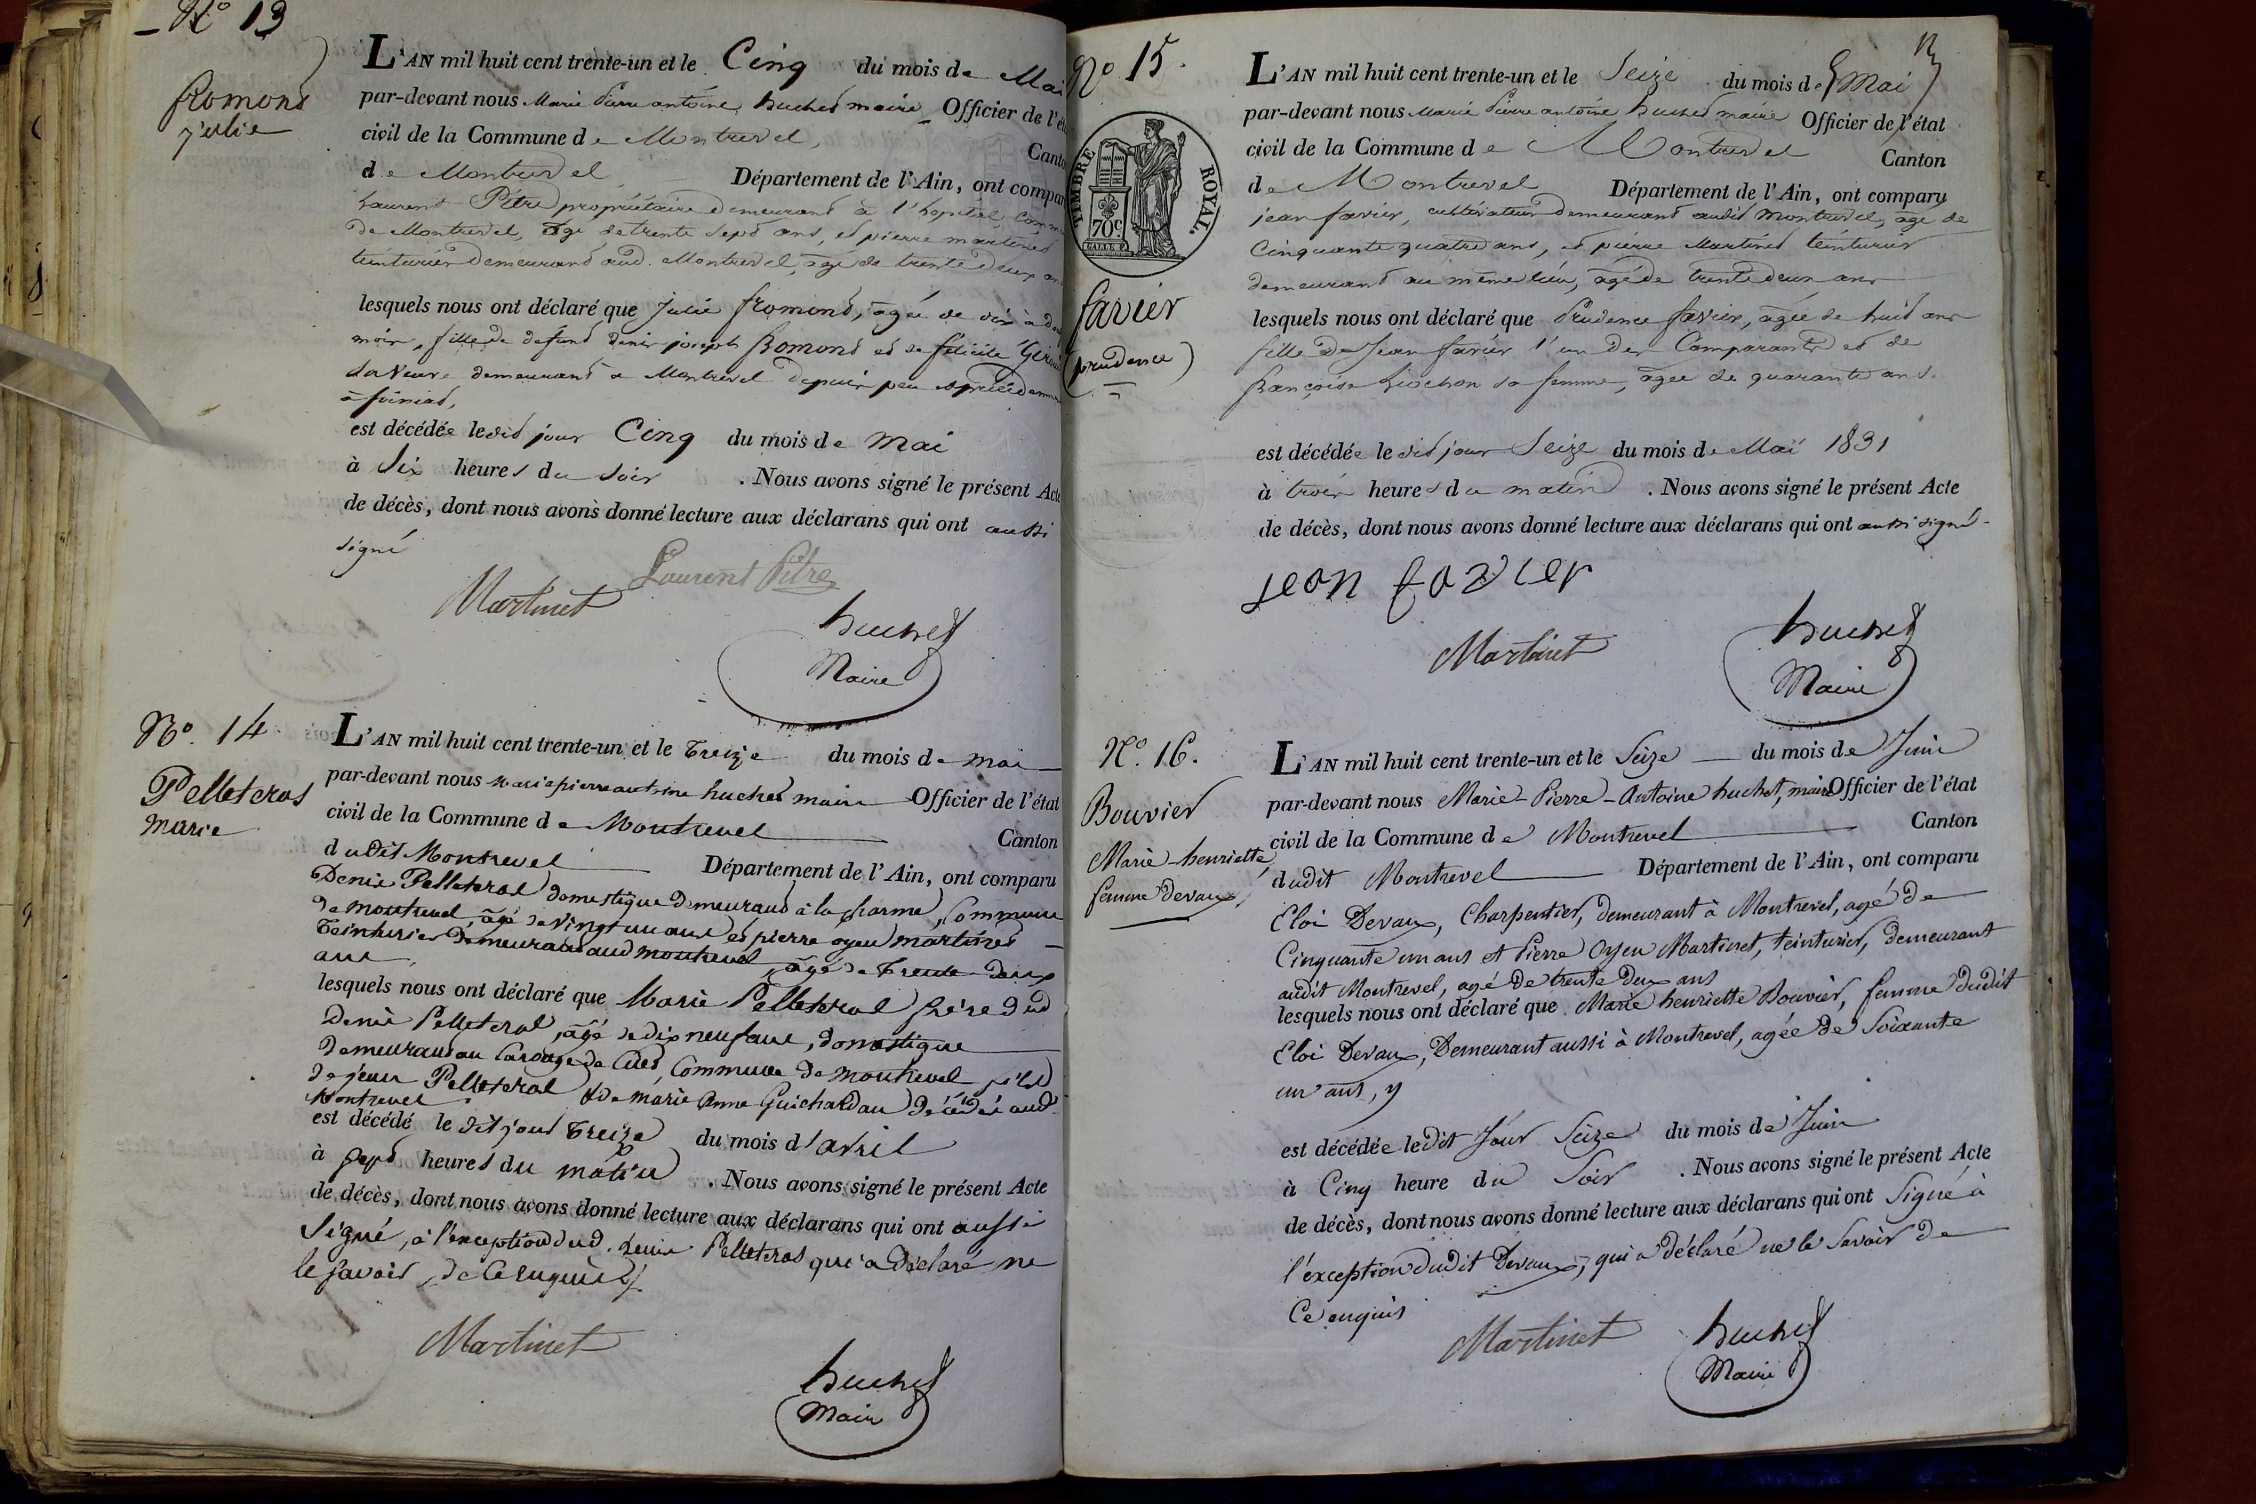 N° 13
fromond
julie
L'AN mil huit cent trente-un et le Cinq du mois de Mai
par-devant nous Marie Pierre antoine huchet maire Officier de l'ét
civil de la Commune de Montrevel, Canto
de Montrevel Département de l'Ain, ont compar
Laurent Pitre propriétaire demeurant à l'hopital, Comm
de Montrevel, âgé de trente sept ans, et pierre martinet
teinturier demeurant aud. Montrevel, âgé de trente deux an
lesquels nous ont déclaré que Julie fromond, âgée de dix à
mois, fille de defunt denis joseph fromond et de felicité
sa veuve demeurant à Montrevel depuis peu et précédemm
à
est décédée ledit jour Cinq du mois de mai
à Six heures du soir . Nous avons signé le présent Acte
de décès, dont nous avons donné lecture aux déclarans qui ont aussi
signé
Laurent Pitre
Martinet
huchet
Maire
N°. 14
Pelleteras
marie
L'AN mil huit cent trente-un et le treize du mois de mai
par-devant nous marie pierre antoine huchet maire Officier de l'état
civil de la Commune de Montrevel Canton
dudit Montrevel Département de l'Ain, ont comparu
Denis Pelleteral domestique demeurant à la charme, Commune
de montrevel, âgé de vingt un ans et pierre oyen martinet
teinturier demeurant aud montrevel, âgé de trente-deux
ans
lesquels nous ont déclaré que Marie Pelleteral frère dud
denis Pelleteral, âgé de dix neuf ans, domestique
demeurant au de Cuet, Commune de montrevel fils
de jean Pelleteral & de marie Anne Guichardan décédés aud.
Montrevel
est décédé le dit jour treize du mois d'avril
à sept heures du matin . Nous avons signé le présent Acte
de décès, dont nous avons donné lecture aux déclarans qui ont aussi
signé, à l'exception dud. denis Pelleteras qui a déclaré ne
le savoir, de ce enquis
Martinet
huchet
Maire
N° 15.
TIMBRE ROYAL.
70c.
favier
(prudence)
L'AN mil huit cent trente-un et le Seize du mois de Mai
par-devant nous Marie Pierre antoine huchet maire Officier de l'état
civil de la Commune de Montrevel Canton
de Montrevel Département de l'Ain, ont comparu
jean favier, cultivateur demeurant audit Montrevel, âgé de
Cinquante quatre ans, et pierre Martinet teinturier
demeurant au même lieu, âgé de trente deux ans
lesquels nous ont déclaré que Prudence favier, âgée de huit ans
fille de Jean favier l'un des Comparants et de
françoise Liochon sa femme, âgée de quarante ans.
est décédée le dit jour Seize du mois de Mai 1831
à trois heures du matin . Nous avons signé le présent Acte
de décès, dont nous avons donné lecture aux déclarans qui ont aussi signé
jean favier
Martinet
huchet
Maire
N°. 16.
Bouvier
Marie-henriette,
femme devaux
L'AN mil huit cent trente-un et le Seize du mois de Juin
par-devant nous Marie-Pierre-Antoine huchet, maire Officier de l'état
civil de la Commune de Montrevel Canton
dudit Montrevel Département de l'Ain, ont comparu
Eloi Devaux, Charpentier, demeurant à Montrevel, agé de
Cinquante un ans et Pierre Oyen Martinet, teinturier, demeurant
audit Montrevel, agé de trente deux ans
lesquels nous ont déclaré que Marie henriette Bouvier, femme dudit
Eloi Devaux, Demeurant aussi à Montrevel, agée de Soixante
un ans,
est décédée ledit Jour Seize du mois de Juin
à Cinq heure du Soir . Nous avons signé le présent Acte
de décès, dont nous avons donné lecture aux déclarans qui ont Signé à
l'exception dudit Devaux, qui a déclaré ne le Savoir de
Ce enquis
Martinet
huchet
Maire